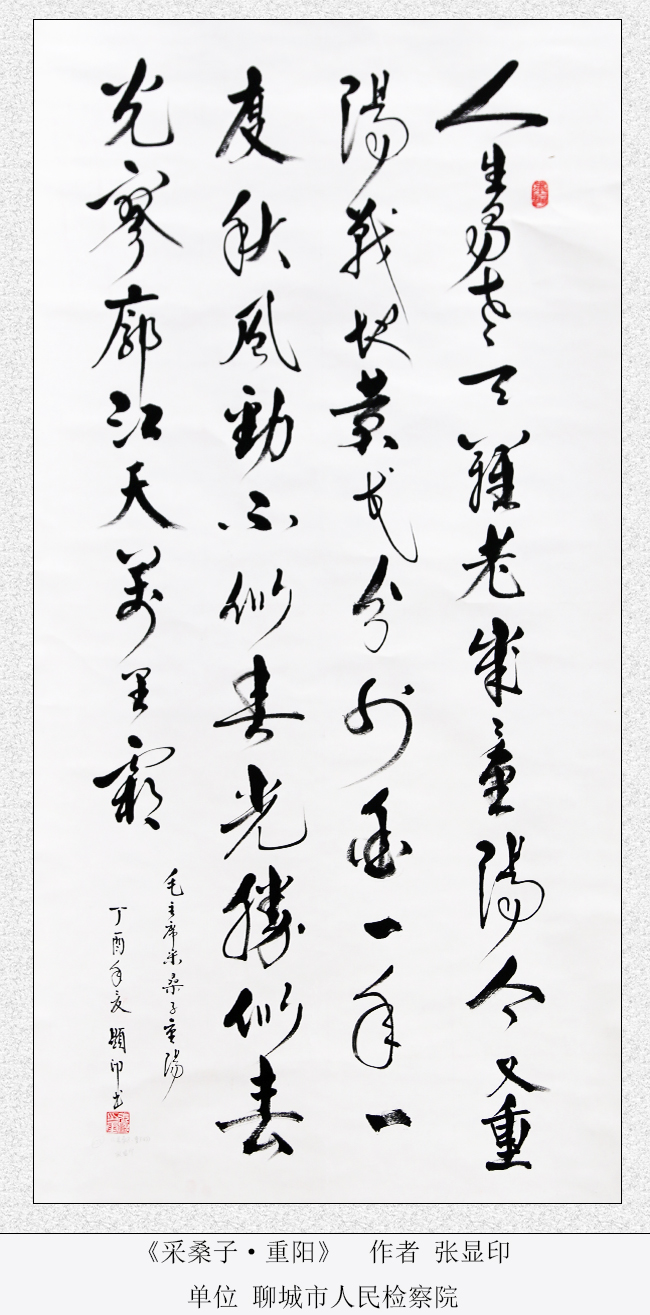 人生易老天難老歲々重陽今又重
陽戰地黄花分外香一年一
度秋風勁不似春光勝似春
光寥廓江天萬里霜
毛主席采桑子重陽
丁酉年夏 顯印书
《采桑子·重阳》 作者 张显印
单位 聊城市人民检察院